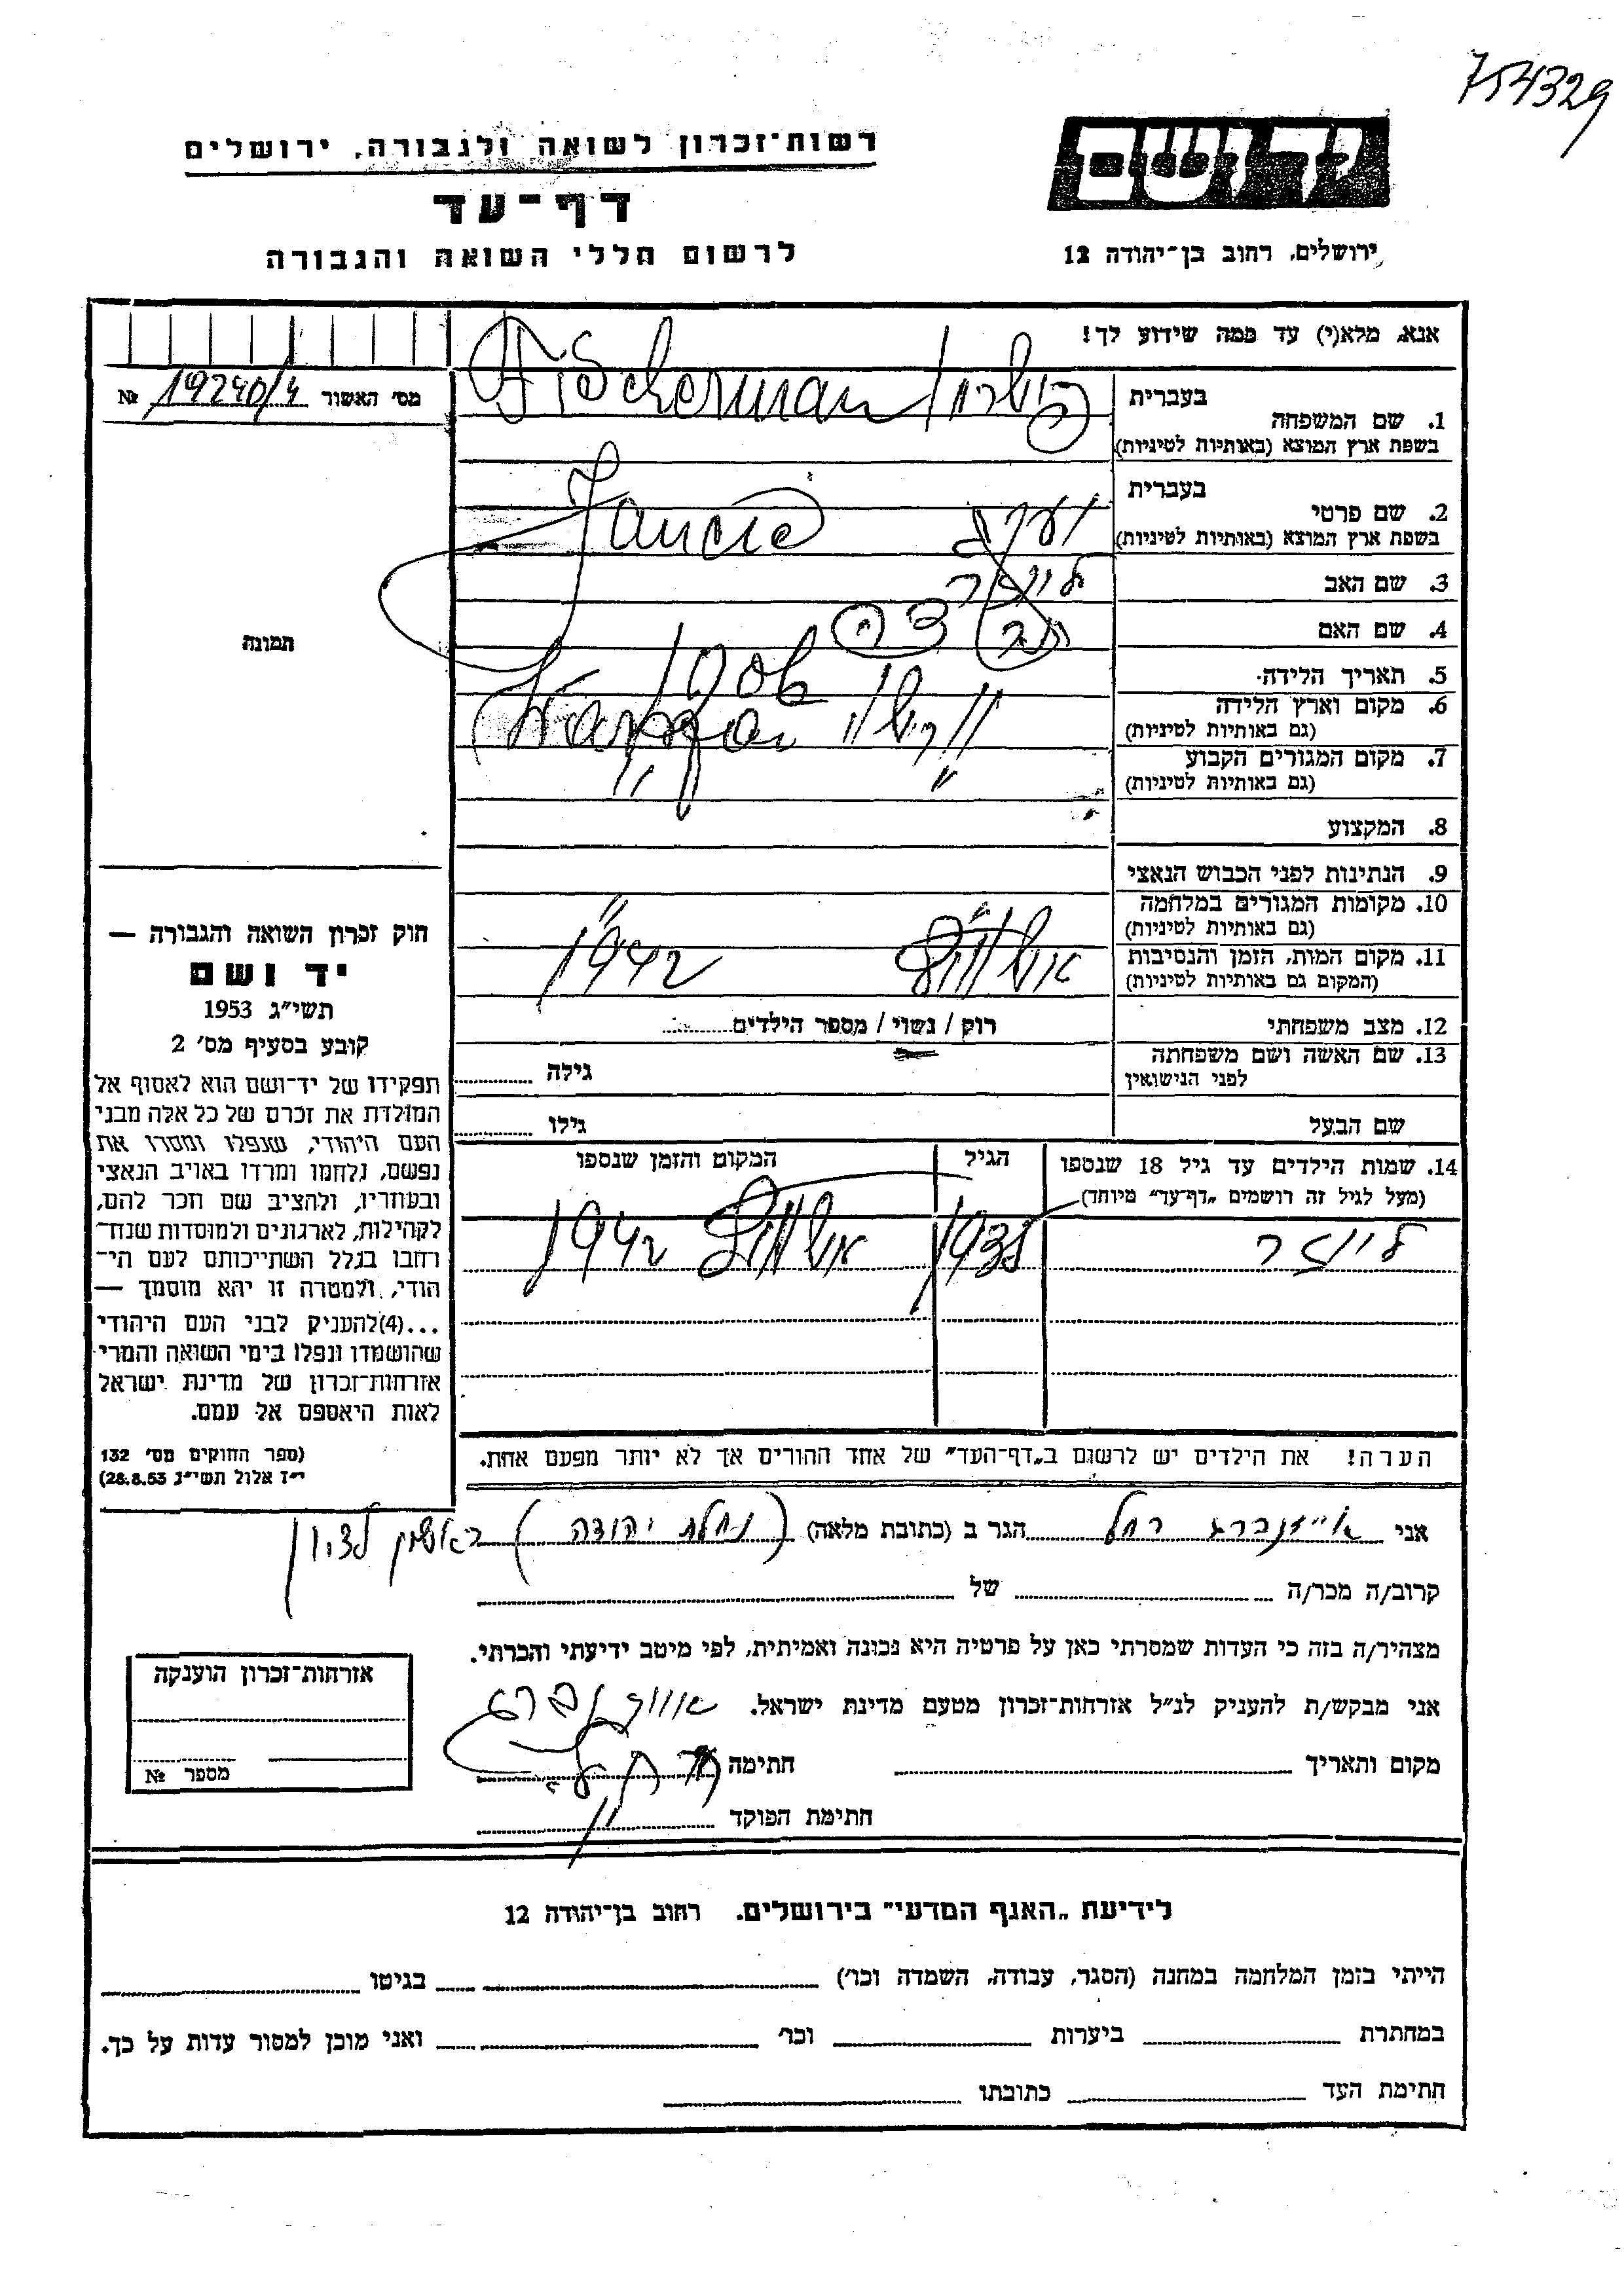 754329
יד ושם
ירושלים, רחוב בן־יהודה 12
רשות־זכרון לשואה ולגבורה, ירושלים
דף־עד
לרשום חללי השואה והגבורה
אנא, מלא(י) עד כמה שידוע לך!
מס׳ האשור 19240/4 №
תמונה
1. שם המשפחה בעברית פישרמן Fischerman
בשפת ארץ המוצא (באותיות לטיניות)
2. שם פרטי בעברית
בשפת ארץ המוצא (באותיות לטיניות)
3. שם האב לייזר
4. שם האם
5. תאריך הלידה
6. מקום וארץ הלידה
(גם באותיות לטיניות)
7. מקום המגורים הקבוע " "
(גם באותיות לטיניות)
8. המקצוע
9. הנתינות לפני הכבוש הנאצי
10. מקומות המגורים במלחמה " "
(גם באותיות לטיניות)
11. מקום המות, הזמן והנסיבות 1942
(המקום גם באותיות לטיניות)
12. מצב משפחתי רוק / נשוי / מספר הילדים
13. שם האשה ושם משפחתה
לפני הנישואין גילה
שם הבעל גילו
14. שמות הילדים עד גיל 18 שנספו הגיל המקום והזמן שנספו
(מעל לגיל זה רושמים „דף־עד" מיוחד)
לייזר 1942
הערה! את הילדים יש לרשום ב„דף־העד" של אחד ההורים אך לא יותר מפעם אחת.
חוק זכרון השואה והגבורה —
יד ושם
תשי״ג 1953
קובע בסעיף מס׳ 2
תפקידו של יד־ושם הוא לאסוף אל
המולדת את זכרם של כל אלה מבני
העם היהודי, שנפלו ומסרו את
נפשם, נלחמו ומרדו באויב הנאצי
ובעוזריו, ולהציב שם וזכר להם,
לקהילות, לארגונים ולמוסדות שנח־
רבו בגלל השתייכותם לעם הי־
הודי, ולמטרה זו יהא מוסמך —
...(4)להעניק לבני העם היהודי
שהושמדו ונפלו בימי השואה והמרי
אזרחות־זכרון של מדינת ישראל
לאות היאספם אל עמם.
(ספר החוקים מס׳ 132
י״ז אלול תשי״ג 28.8.53)
אני אייזנברג רחל הגר ב (כתובת מלאה) (נחלת יהודה) ראשון לציון
קרוב/ה מכר/ה של
מצהיר/ה בזה כי העדות שמסרתי כאן על פרטיה היא נכונה ואמיתית, לפי מיטב ידיעתי והכרתי.
אני מבקש/ת להעניק לנ״ל אזרחות־זכרון מטעם מדינת ישראל. אייזנברג
מקום ותאריך חתימה רחל
חתימת הפוקד
אזרחות־זכרון הוענקה
מספר №
לידיעת „האגף המדעי" בירושלים. רחוב בן־יהודה 12
הייתי בזמן המלחמה במחנה (הסגר, עבודה, השמדה וכו׳) בגיטו
במחתרת ביערות וכו׳ ואני מוכן למסור עדות על כך.
חתימת העד כתובתו